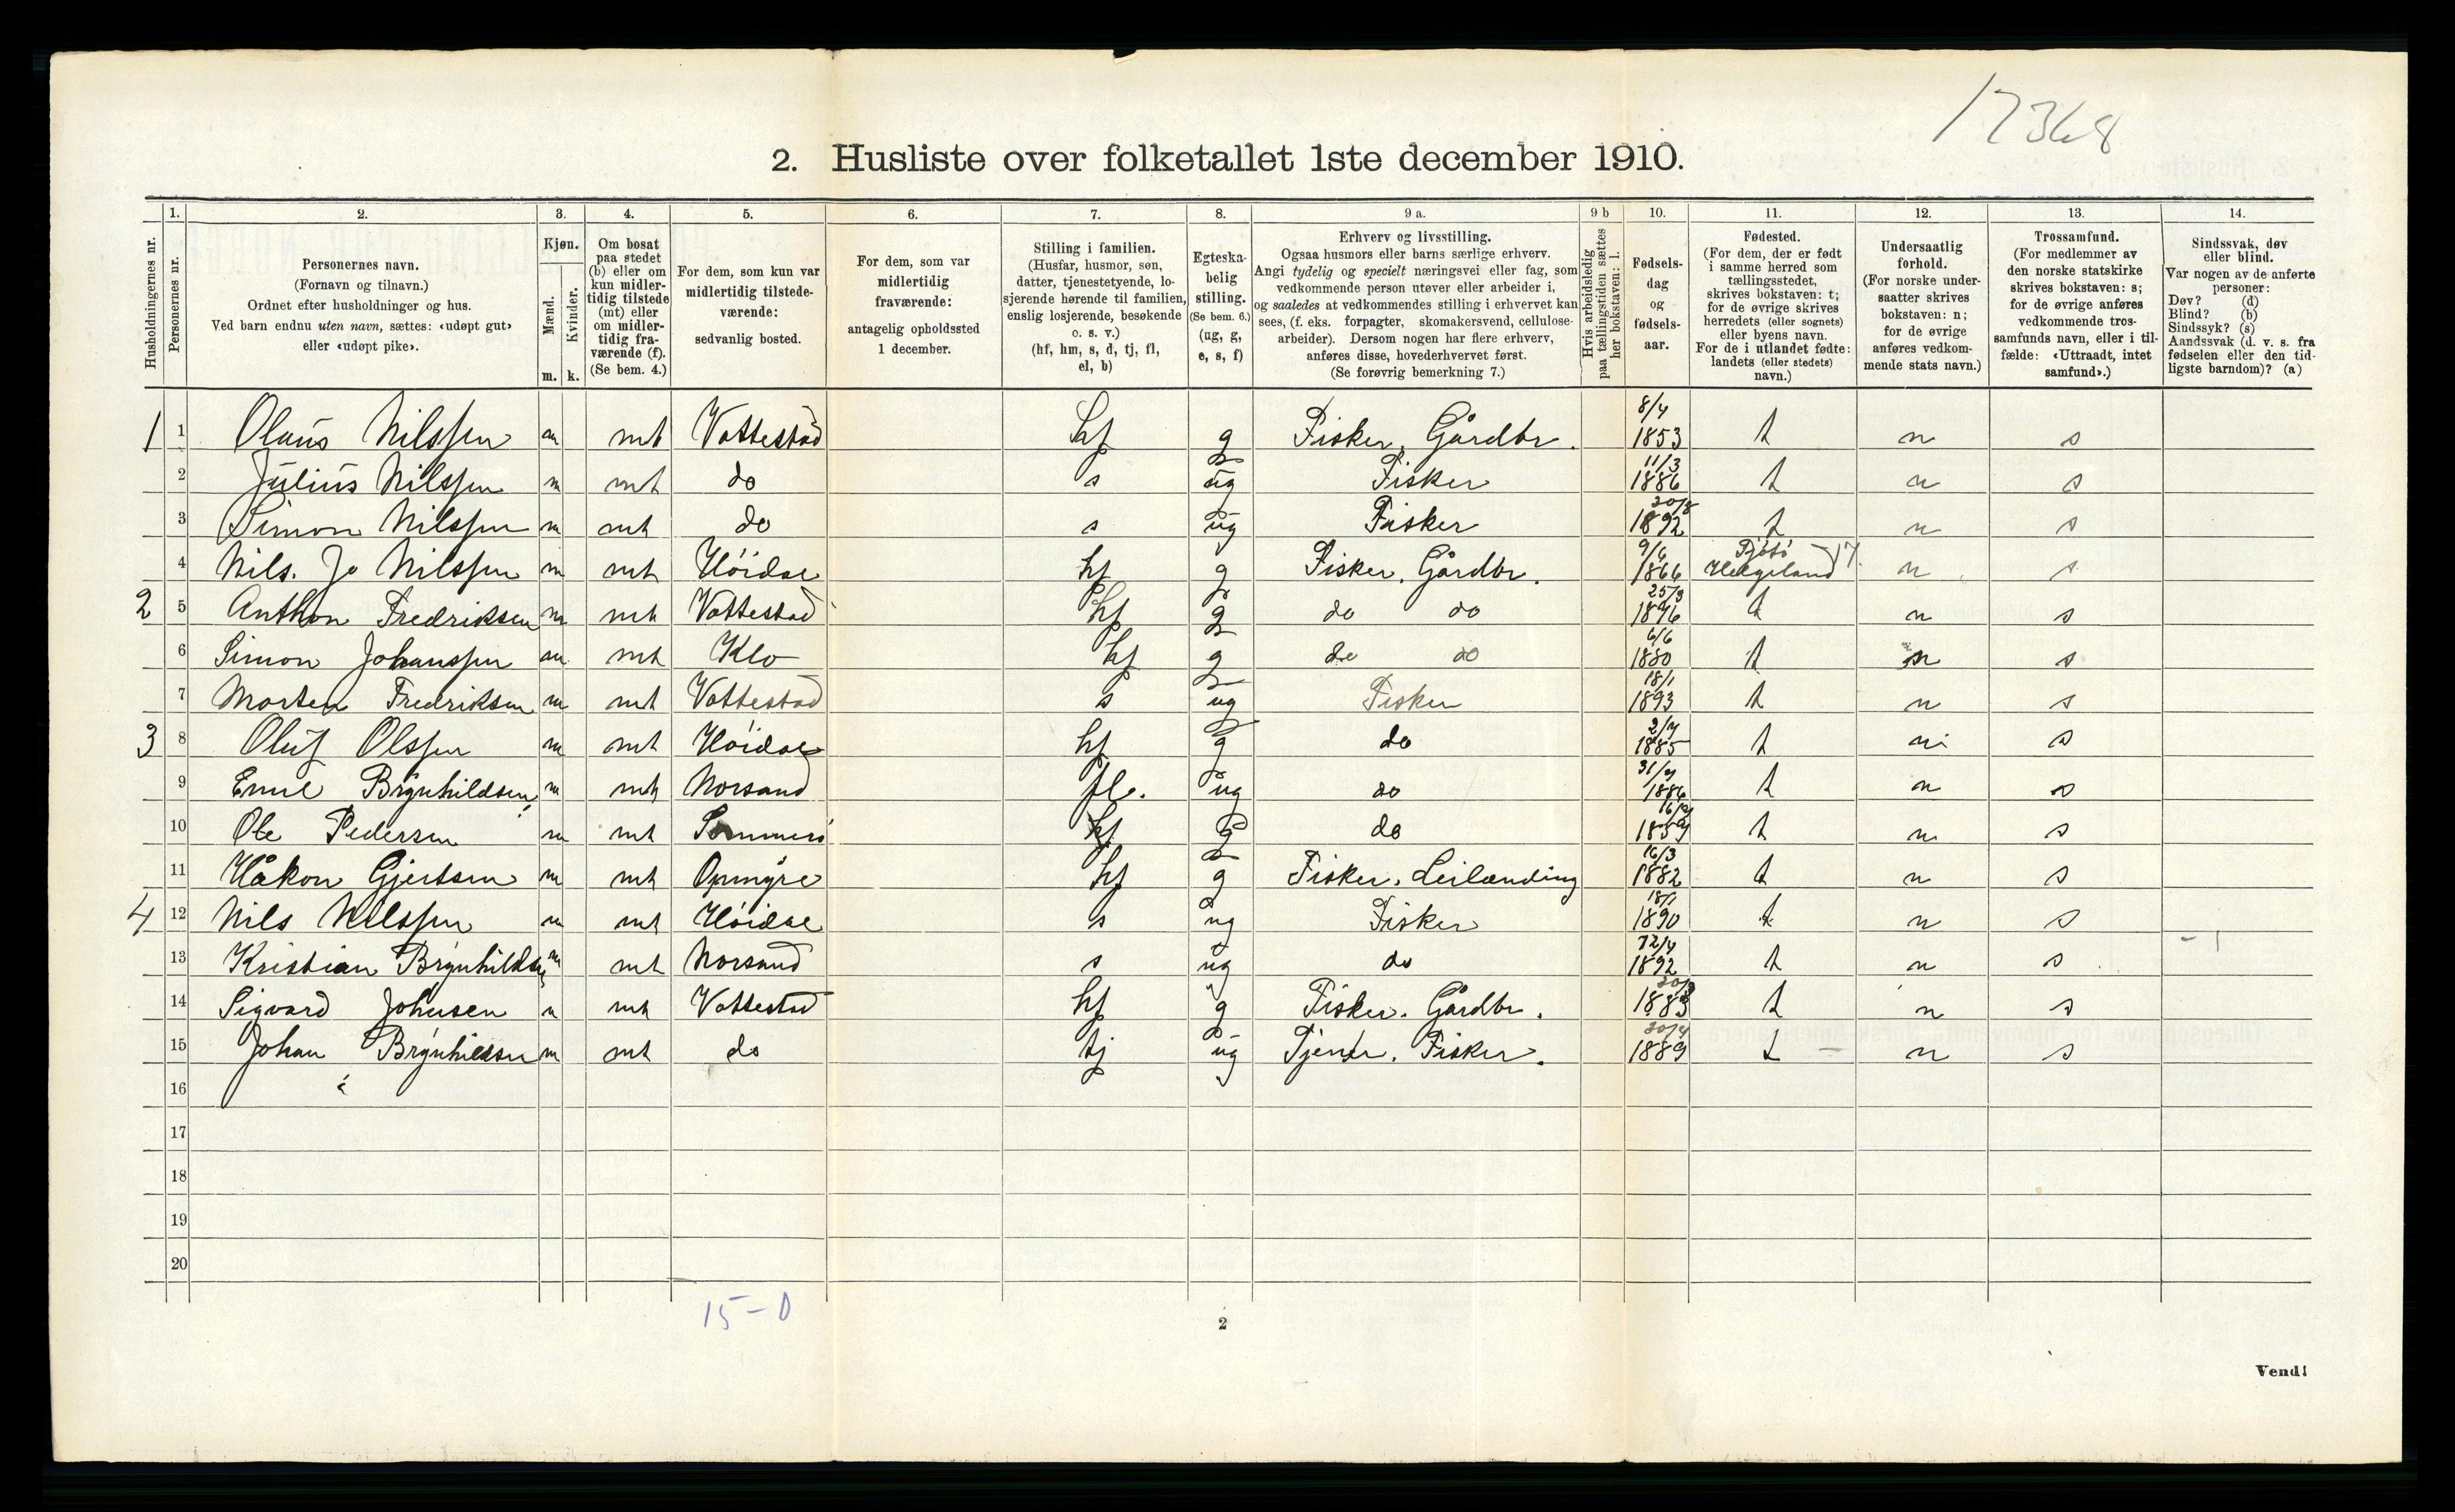 17368
2. Husliste over folketallet 1ste december 1910.
Husholdningernes nr.
1.
Personernes nr.
2.
Personernes navn.
(Fornavn og tilnavn.)
Ordnet efter husholdninger og hus.
Ved barn endnu uten navn, sættes: «udøpt gut»
eller «udøpt pike».
3.
Kjøn.
Mænd.
Kvinder.
m. k.
4.
Om bosat
paa stedet
(b) eller om
kun midler-
tidig tilstede
(mt) eller
om midler-
tidig fra-
værende (f).
(Se bem. 4.)
5.
For dem, som kun var
midlertidig tilstede-
værende:
sedvanlig bosted.
6.
For dem, som var
midlertidig
fraværende:
antagelig opholdssted
1 december.
7.
Stilling i familien.
(Husfar, husmor, søn,
datter, tjenestetyende, lo-
sjerende hørende til familien,
enslig losjerende, besøkende
o. s. v.)
(hf, hm, s, d, tj, fl,
el, b)
8.
Egteska-
belig
stilling.
(Se bem. 6.)
(ug, g,
e, s, f)
9 a.
Erhverv og livsstilling.
Ogsaa husmors eller barns særlige erhverv.
Angi tydelig og specielt næringsvei eller fag, som
vedkommende person utøver eller arbeider i,
og saaledes at vedkommendes stilling i erhvervet kan
sees, (f. eks. forpagter, skomakersvend, cellulose-
arbeider). Dersom nogen har flere erhverv,
anføres disse, hovederhvervet først.
(Se forøvrig bemerkning 7.)
9 b
Hvis arbeidsledig
paa tællingstiden sættes
her bokstaven: l.
10.
Fødsels-
dag
og
fødsels-
aar.
11.
Fødested.
(For dem, der er født
i samme herred som
tællingsstedet,
skrives bokstaven: t;
for de øvrige skrives
herredets (eller sognets)
eller byens navn.
For de i utlandet fødte:
landets (eller stedets)
navn.)
12.
Undersaatlig
forhold.
(For norske under-
saatter skrives
bokstaven: n;
for de øvrige
anføres vedkom-
mende stats navn.)
13.
Trossamfund.
(For medlemmer av
den norske statskirke
skrives bokstaven: s;
for de øvrige anføres
vedkommende tros-
samfunds navn, eller i til-
fælde: «Uttraadt, intet
samfund».)
14.
Sindssvak, døv
eller blind.
Var nogen av de anførte
personer:
Døv? (d)
Blind? (b)
Sindssyk? (s)
Aandssvak (d. v. s. fra
fødselen eller den tid-
ligste barndom)? (a)
1 1 Olaus Nilssen m mt Vottestad hf g Fisker, Gårdbr. 8/4 1853 t n s
2 Julius Nilssen m mt do s ug Fisker 11/3 1886 t n s
3 Simon Nilssen m mt do s ug Fisker 20/8 1892 t n s
4 Nils. Jo Nilssen m mt Höidal hf g Fisker. Gårdbr. 9/6 1866 Tjötö Helgeland n s
2 5 Anthon Fredriksen m mt Vottestad hf g do do 25/3 t n s
6 Simon Johanssen m mt Klo hf g do do 6/6 1880 t n s
7 Morten Fredriksen m mt Vottestad s ug Fisker 18/1 1893 t n s
3 8 Oluf Olssen m mt Höidal hf g do 2/4 1885 t n s
9 Emil Brynhildsen m mt Norsand fl. ug do 1886 t n s
10 Ole Pedersen m mt Sommerö hf g do 1859 t n s
11 Håkon Gjertsen m mt Opmyre hf g Fisker. Leilænding 16/3 1882 t n s
4 12 Nils Nilssen m mt Höidal s ug Fisker 1890 t n s
13 Kristian Brynhildsen m mt Norsand s ug do 12/4 1892 t n s
14 Sigvard Johnsen m mt Vottestad hf g Fisker. Gårdbr. 1883 t n s
15 Johan Brynhildsen m mt do tj ug Tjener. Fisker. 20/4 1889 t n s
16
17
18
19
20
15-0
2
Vend!